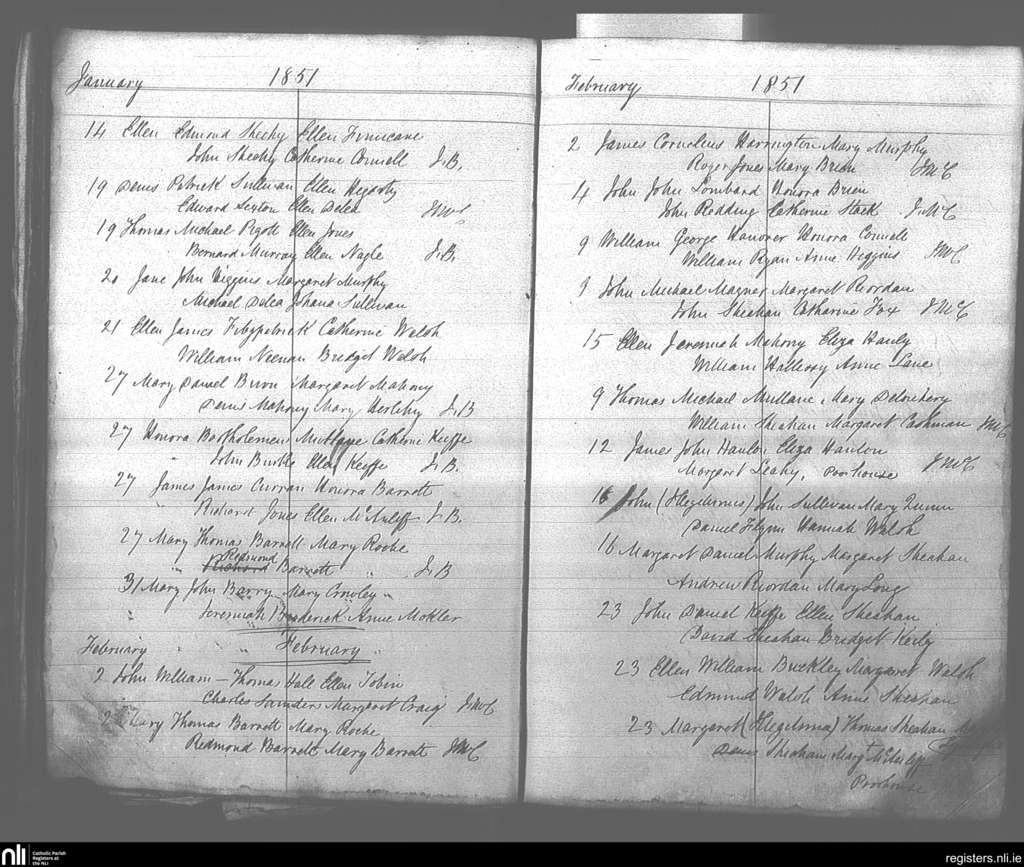 January 1851
14 Ellen Edmond Sheehy Ellen Finucane
John Sheehy Catherine Connell J.B.
19 Denis Patrick Sullivan Ellen Hegarty
Edward Sexton Ellen Delea JMcC
19 Thomas Michael Pigott Ellen Jones
Bernard Murray Ellen Nagle J.B.
20 Jane John Higgins Margaret Murphy
Michael Delea Johana Sullivan
21 Ellen James Fitzpatrick Catherine Walsh
William Neenan Bridget Walsh
27 Mary Daniel Brien Margaret Mahony
Denis Mahony Mary Herlihy J.B
27 Honora Bartholemew Mullane Catherine Keeffe
John Burke Ellen Keeffe J.B.
27 James James Curran Honora Barrett
Richard Jones Ellen McAuliff J.B.
27 Mary Thomas Barrett Mary Roche
Redmond
Richard Barrett " J.B
31 Mary John Barry Mary Crowley
Jeremiah Broderick Anne Mokler
February " " February "
2 John William - Thomas Hall Ellen Tobin
Charles Saunders Margaret Craig JMcC
2 Mary Thomas Barrett Mary Roche
Redmond Barrett Mary Barrett JMcC
February 1851
2 James Cornelius Harrington Mary Murphy
Roger Jones Mary Brien JMcC
4 John John Lombard Honora Brien
John Redding Catherine Stack J.McC
9 William George Hanover Honora Connell
William Ryan Anne Higgins JMcC
9 John Michael Magner Margaret Riordan
John Sheahan Catharine Fox JMcC
15 Ellen Jeremiah Mahony Eliza Hanly
William Hallessy Anne Lane
9 Thomas Michael Mullane Mary Delouhery
William Sheahan Margaret Cashman JMcC
12 James John Hanlon Eliza Hanlon
Margaret Leahy, Poorhouse JMcC
16 John (Illegitimus) John Sullivan Mary Quinn
Daniel Flynn Hannah Walsh
16 Margaret Daniel Murphy Margaret Sheahan
Andrew Riordan Mary Long
23 John Daniel Keeffe Ellen Sheahan
David Sheahan Bridget Kiely
23 Ellen William Buckley Margaret Walsh
Edmund Walsh Anne Sheahan
23 Margaret (Illegitima) Thomas Sheahan
Denis Sheahan Mary McAuliff
Poorhouse
nli Catholic Parish
Registers at
the NLI
registers.nli.ie